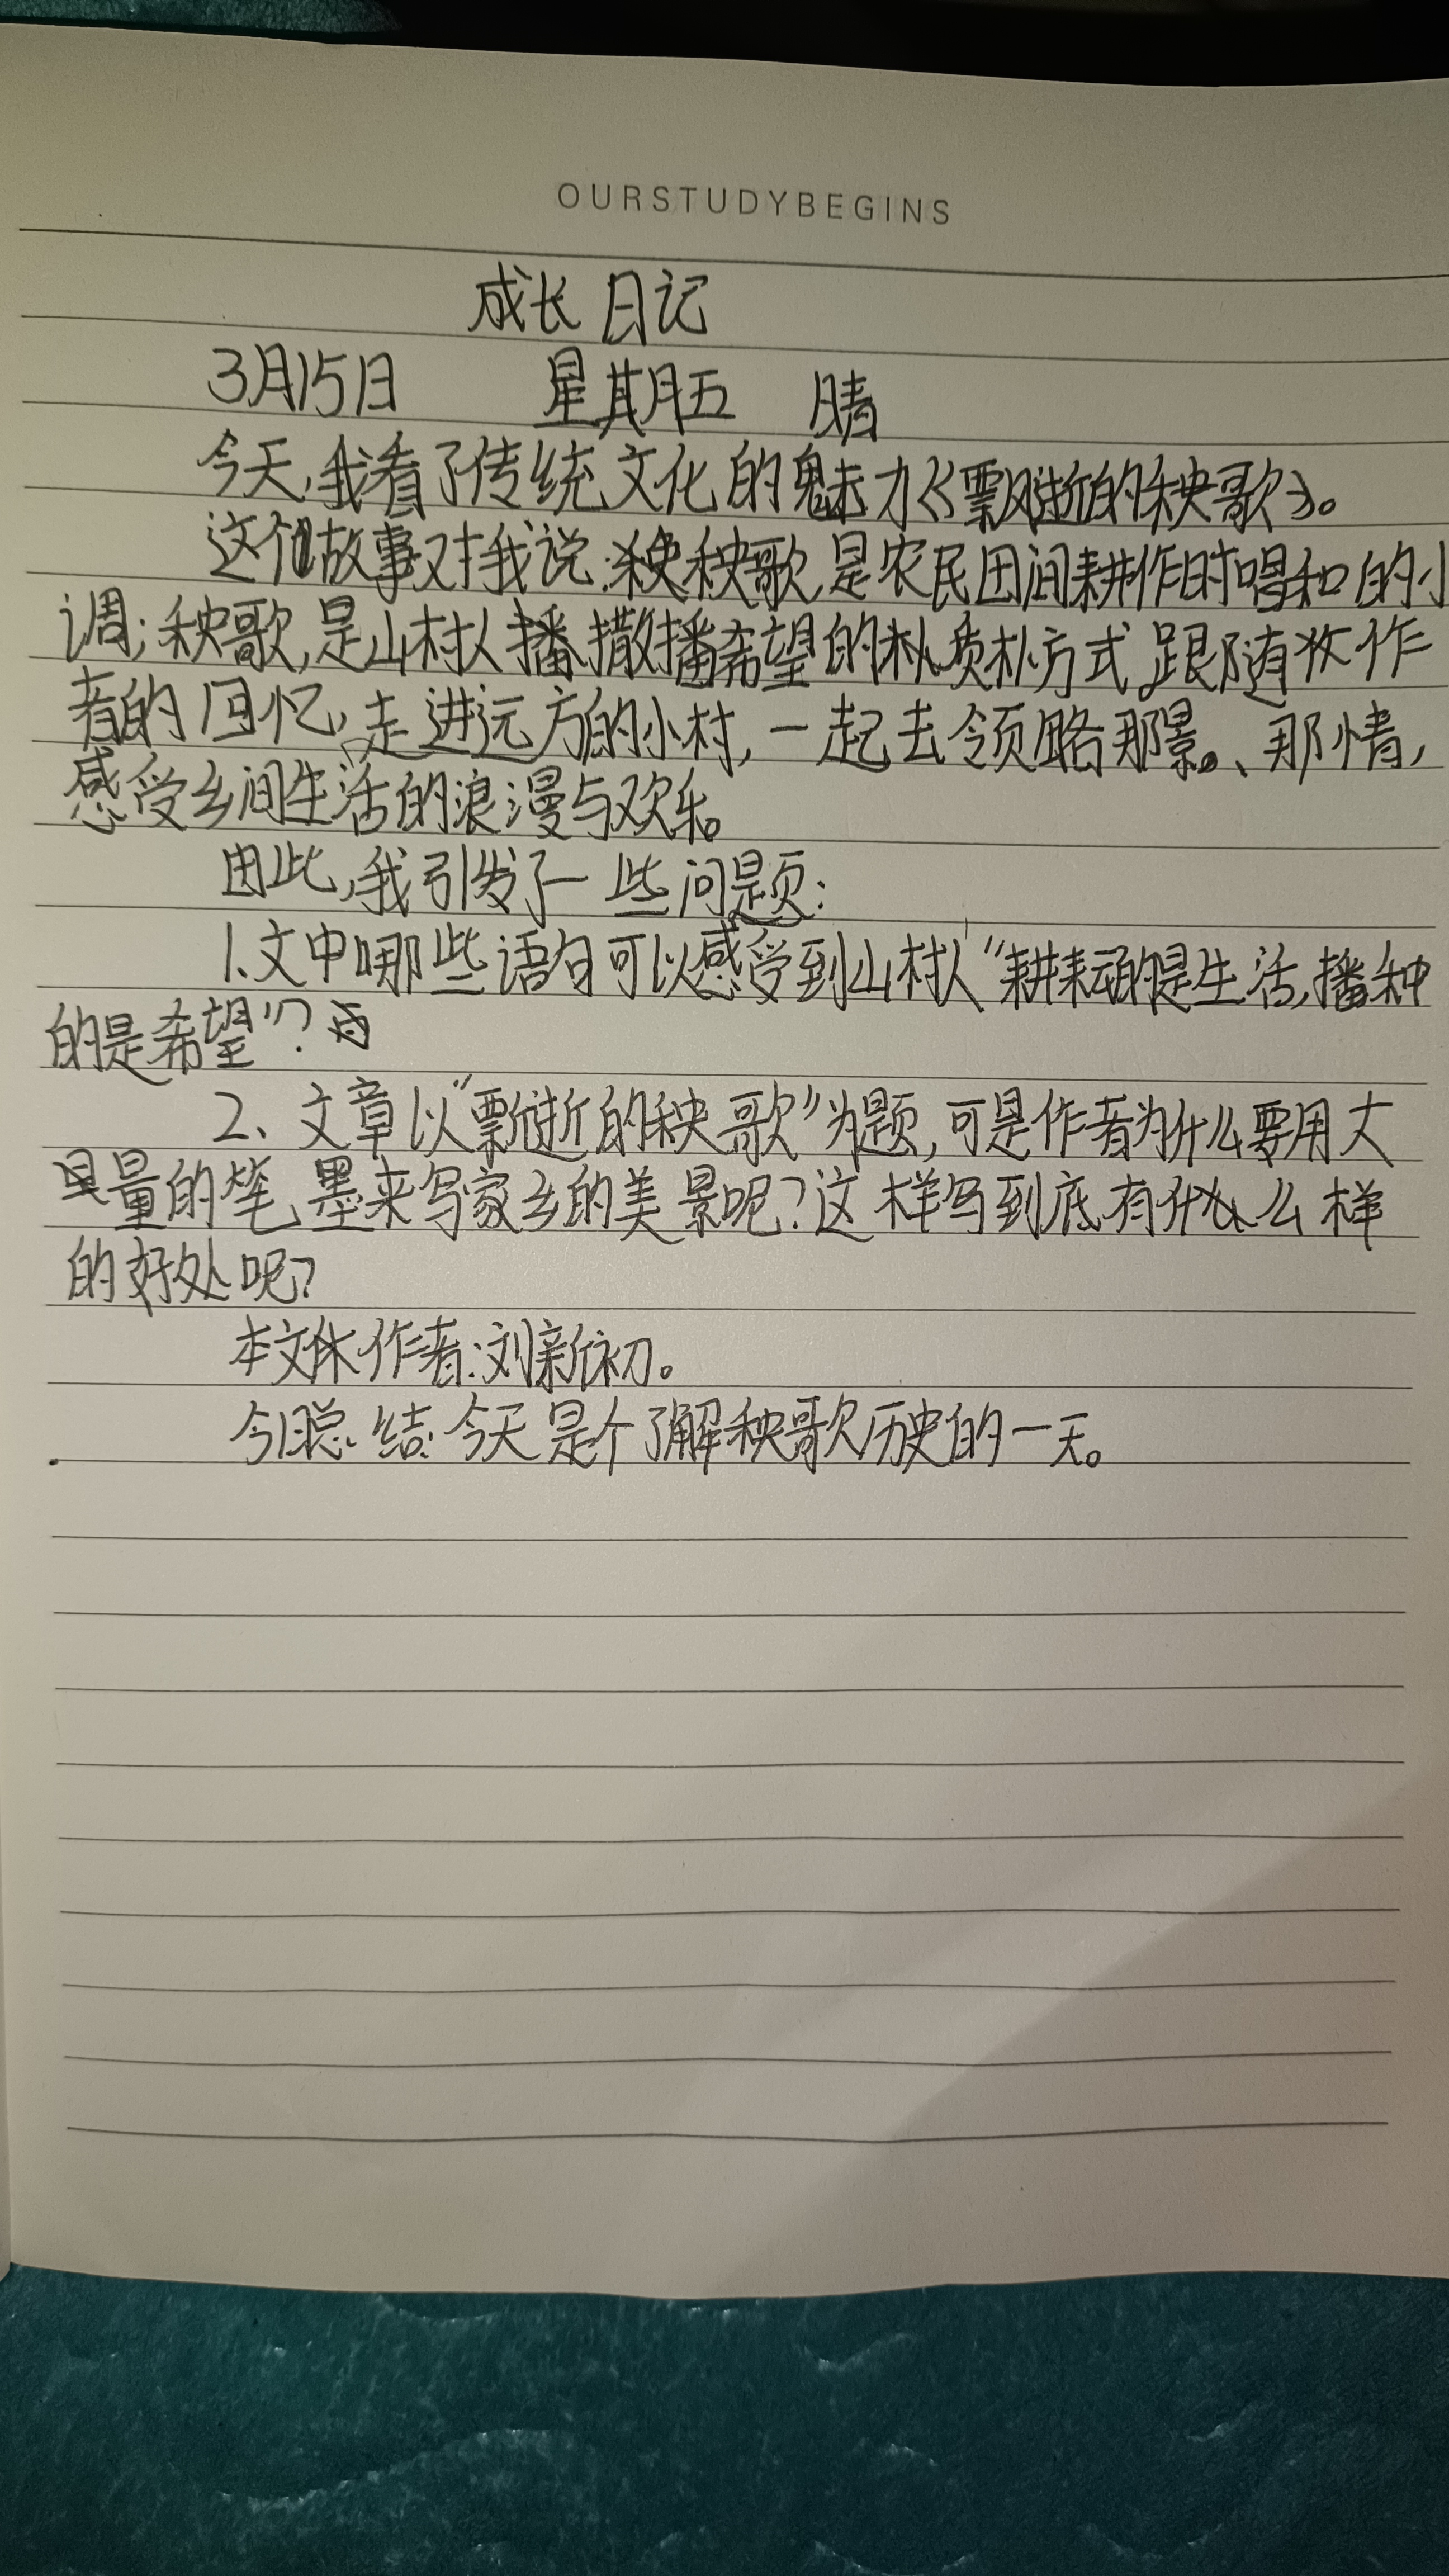 OURSTUDYBEGINS
成长日记
3月15日 星期五 晴
今天,我看了传统文化的魅力《飘逝的秧歌》。
这个故事对我说:秧歌,是农民田间耕作时唱和的小
调;秧歌,是山村人播撒希望的质朴方式。跟随作
者的回忆,走进远方的小村,一起去领略那景、那情,
感受乡间生活的浪漫与欢乐。
因此,我引发了一些问题:
1.文中哪些语句可以感受到山村人“耕耘的是生活,播种
的是希望”?
2、文章以“飘逝的秧歌”为题,可是作者为什么要用大
量的笔墨来写家乡的美景呢?这样写到底有什么样
的好处呢?
本文作者:刘新初。
今日总结:今天是个了解秧歌历史的一天。